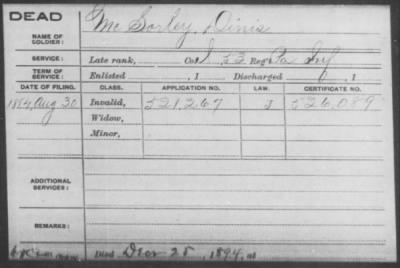 DEAD
NAME OF SOLDIER: McSorley, Dinis
SERVICE: Late rank, Co. I, 53 Reg't Pa Inf
TERM OF SERVICE: Enlisted , 1 Discharged , 1
DATE OF FILING. CLASS. APPLICATION NO. LAW. CERTIFICATE NO.
1884, Aug 30 Invalid, 521,267 526,089
Widow,
Minor,
ADDITIONAL SERVICES:
REMARKS:
Died Dec 25, 1894, at